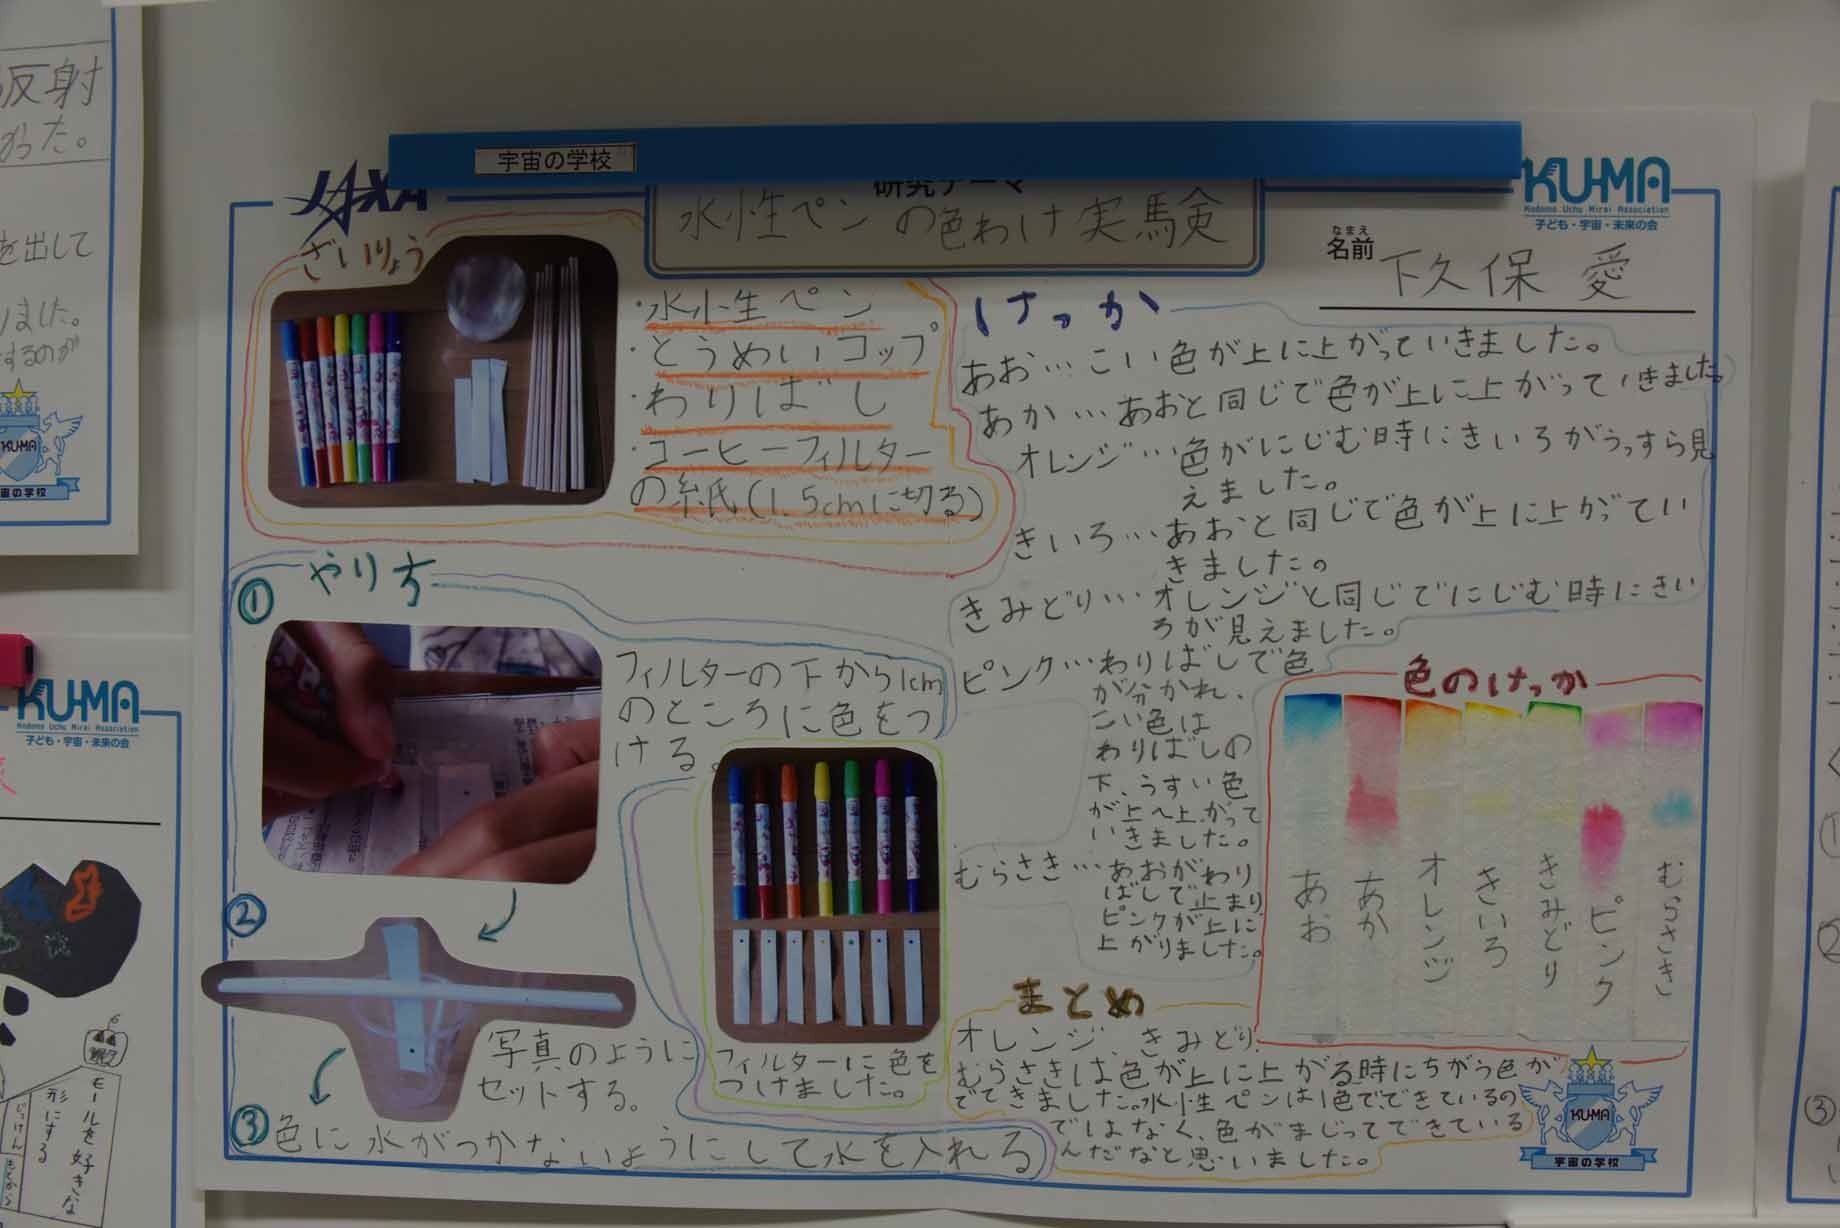 宇宙の学校
JAXA
研究テーマ
水性ペンの色わけ実験
KU-MA
Kodomo Uchu Mirai Association
子ども・宇宙・未来の会
なまえ
名前
下久保 愛
ざいりょう
・水性ペン
・とうめいコップ
・わりばし
・コーヒーフィルター
の紙(1.5cmに切る)
やり方
①
フィルターの下から1cm
のところに色をつ
ける。
フィルターに色を
つけました。
②
写真のように
セットする。
③色に水がつかないようにして水を入れる
けっか
あお…こい色が上に上がっていきました。
あか…あおと同じで色が上に上がっていきました。
オレンジ…色がにじむ時にきいろがうっすら見
えました。
きいろ…あおと同じで色が上に上がってい
きました。
きみどり…オレンジと同じでにじむ時にきい
ろが見えました。
ピンク…わりばしで色
が分かれ、
こい色は
わりばしの
下、うすい色
が上へ上がって
いきました。
むらさき…あおがわり
ばしで止まり
ピンクが上に
上がりました。
色のけっか
あお
あか
オレンジ
きいろ
きみどり
ピンク
むらさき
まとめ
オレンジ、きみどり、
むらさきは色が上に上がる時にちがう色が
でてきました。水性ペンは1色でできているの
ではなく、色がまじってできている
んだなと思いました。
KUMA
宇宙の学校
反射
った。
を出して
りました。
するのが
KUMA
宇宙の学校
KU-MA
Kodomo Uchu Mirai Association
子ども・宇宙・未来の会
モールを好きな
形にする
③